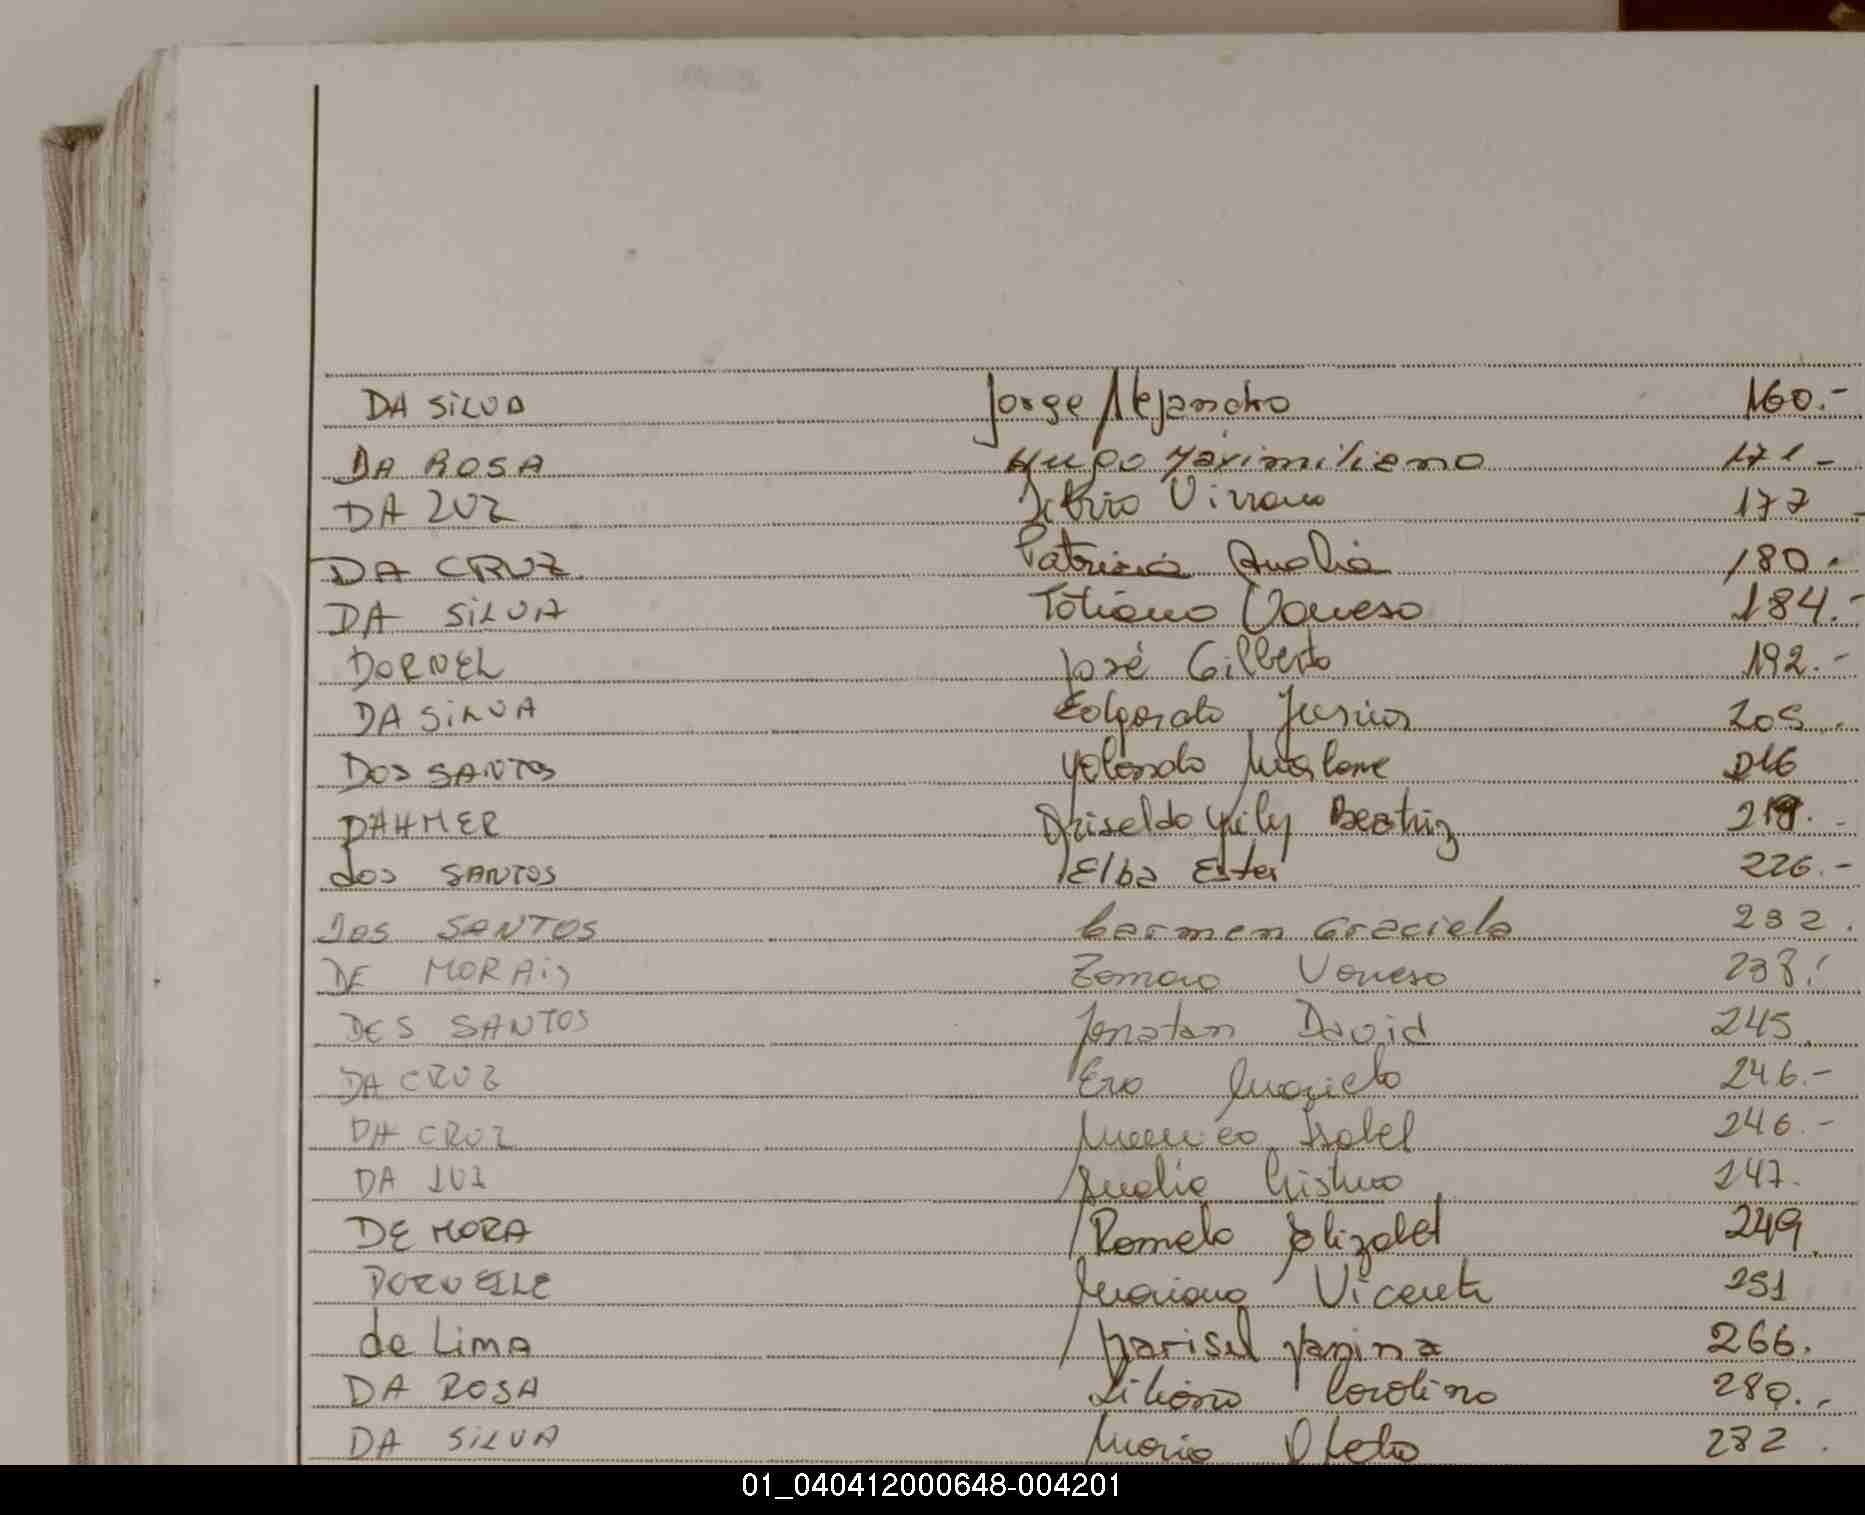 DA SILVA Jorge Alejandro 160.-
DA ROSA Hugo Maximiliano 171-
DA LUZ Silvio Viviana 177
DA CRUZ Patricia Analia 180.
DA SILVA Tatiana Vanesa 184.-
DORNEL José Gilberto 192.-
DA SILVA Edgardo Junior 205.
DOS SANTOS Yolanda Marlene 216
DAHMER Griselda Yily Beatriz 219.
dos SANTOS Elba Ester 226.-
DOS SANTOS Carmen Graciela 232.
DE MORAIS Vanesa 238.
DES SANTOS Jonatan David 245.
DA CRUZ Eva Mariela 246.-
DA CRUZ Isabel 246.-
DA LUZ Analia Cristina 247.
DE MORA Romela Elizabet 249.
DORNELLE Mariana Vicenta 251
de LimA Marisel Yanina 266.
DA ROSA Liliana Carolina 280.-
DA SILVA Maria 282.
01_040412000648-004201